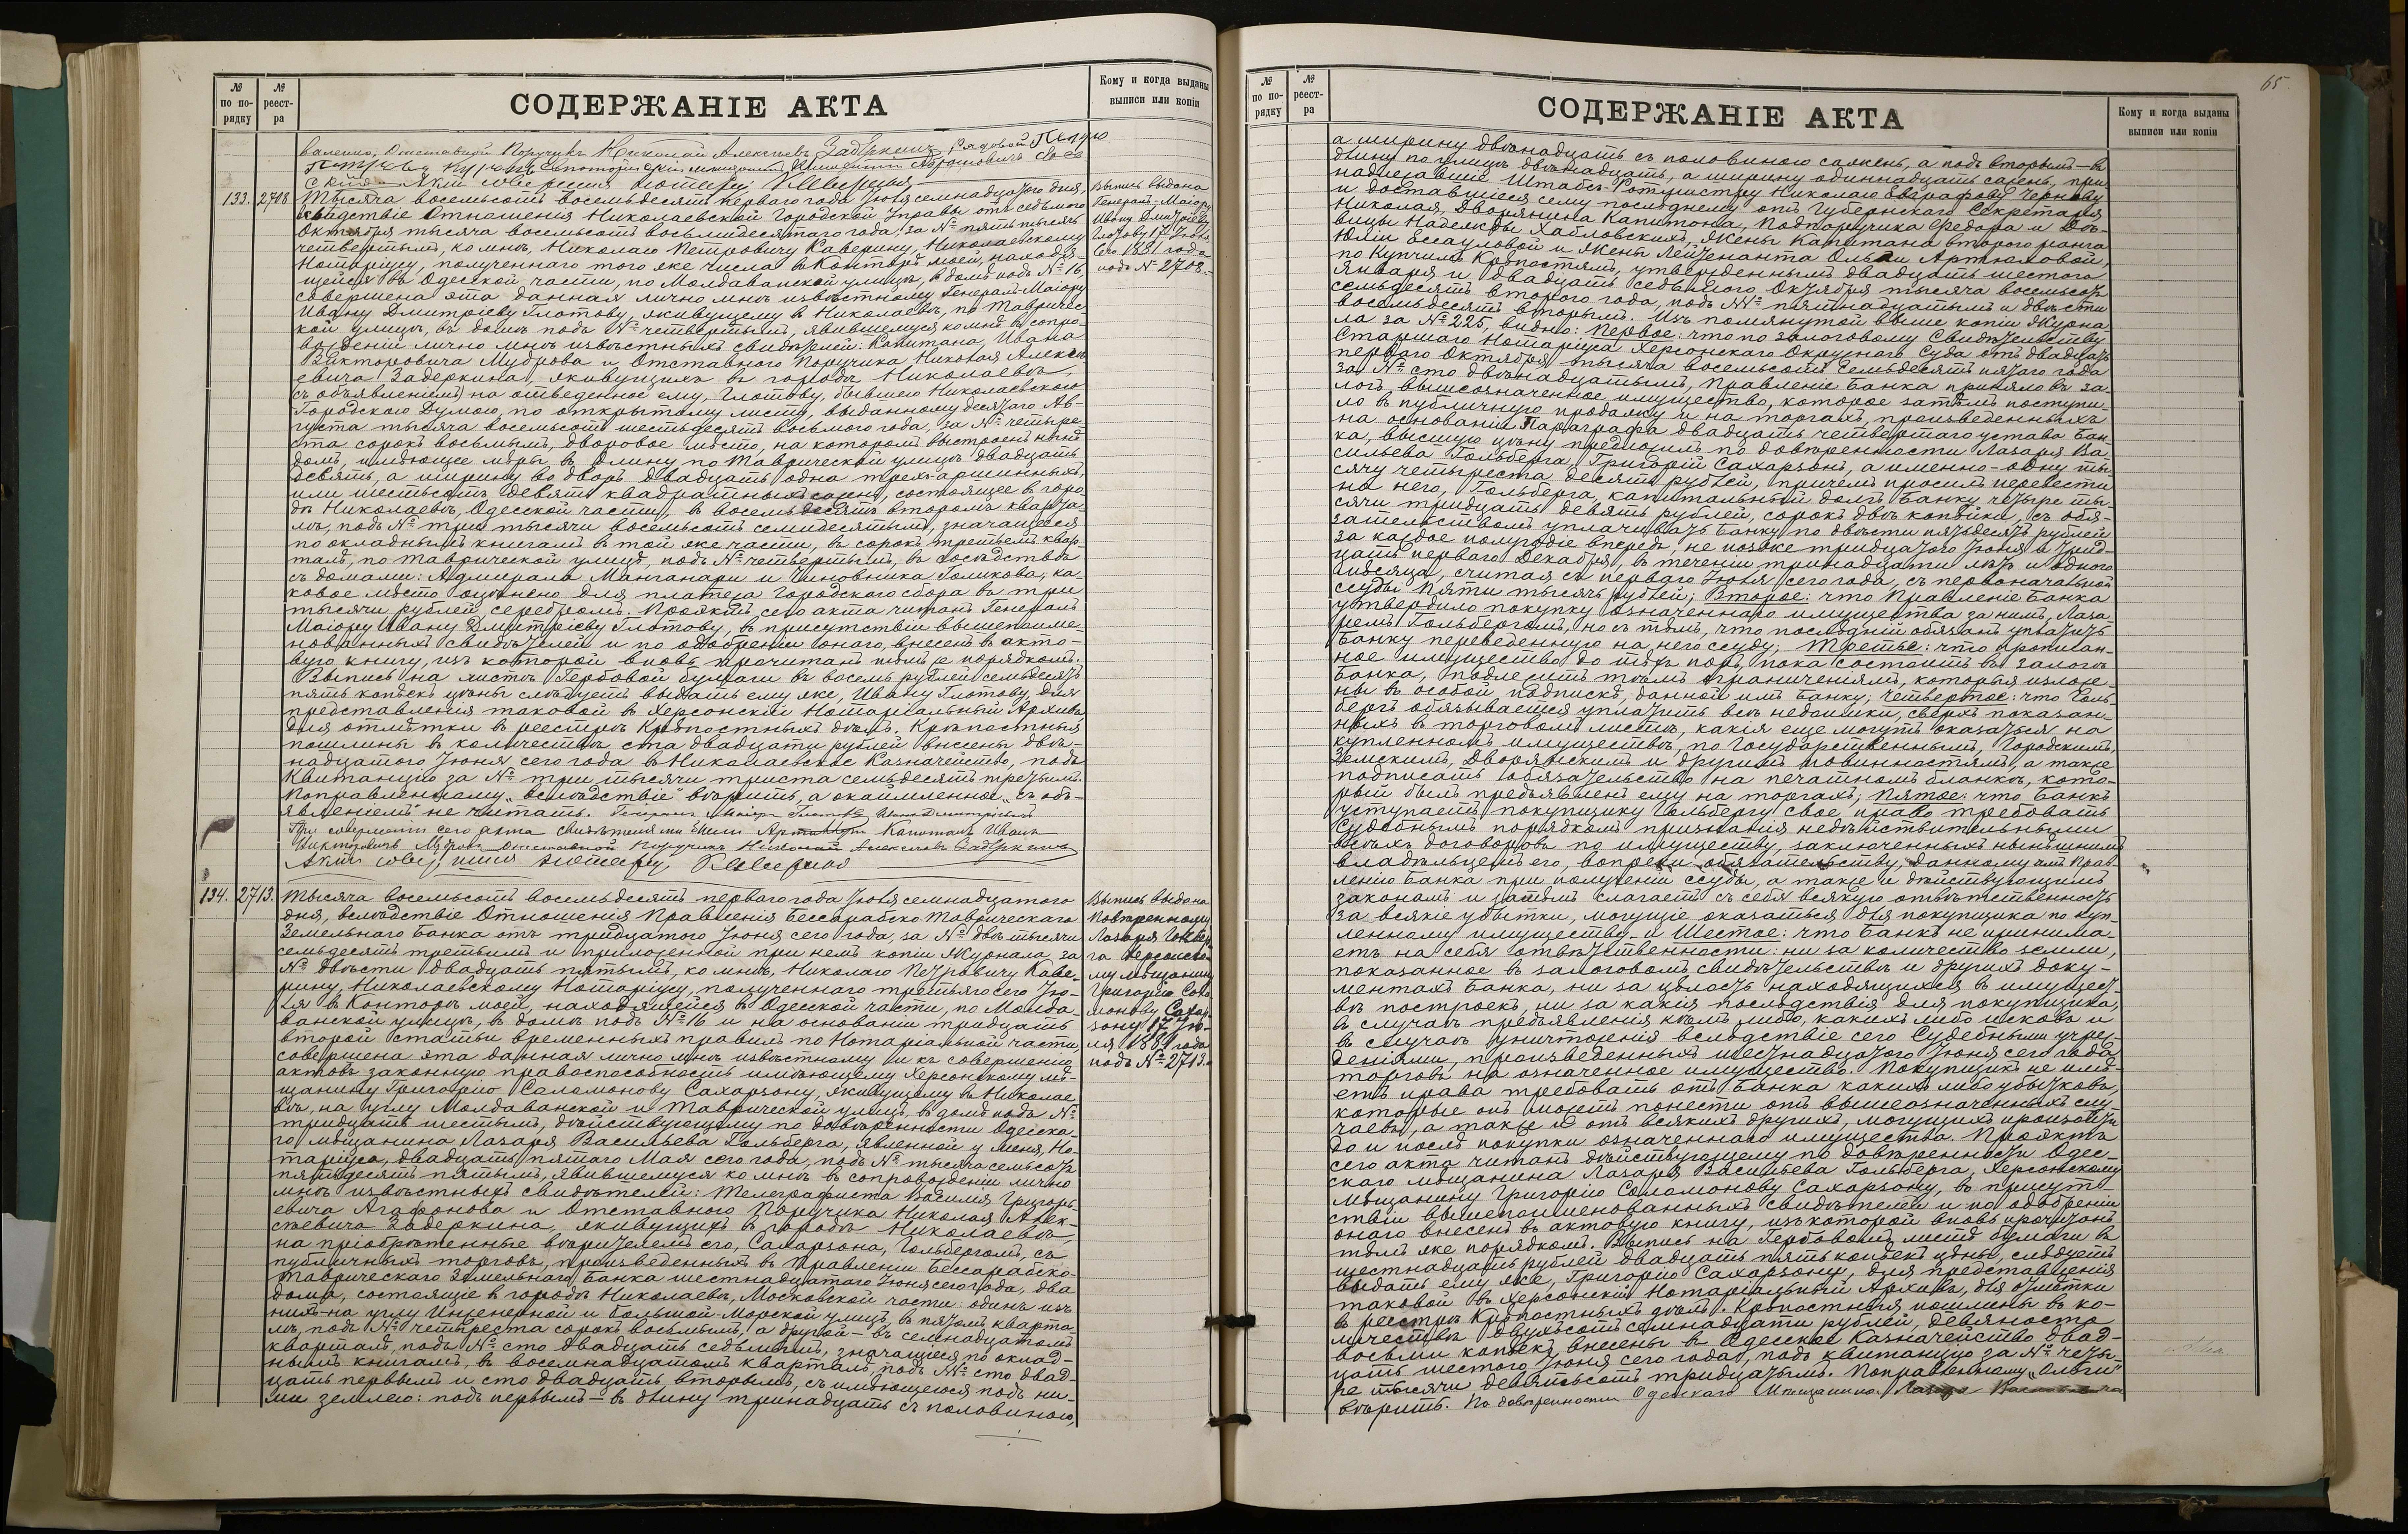 № по порядку
№ реестра
СОДЕРЖАНІЕ АКТА
Кому и когда выданы выписи или копіи
Отставной Поручикъ Николай Алексѣевъ Задеркинъ, Рядовой Петро
133. 2708
Тысяча восемьсотъ восемьдесятъ перваго года Іюля семнадцатаго дня,
вслѣдствіе Отношенія Николаевской Городской Управы отъ седьмого
Октября тысяча восемьсотъ восьмидесятаго года, за № пять тысячъ
четвертымъ, ко мнѣ, Николаю Петровичу Каверину, Николаевскому
Нотаріусу, полученнаго того же числа въ Конторѣ моей, находя-
щейся въ Одесской части, по Молдаванской улицѣ, въ домѣ подъ № 16,
совершена эта данная лично мнѣ извѣстному Генералъ-Маіору
Ивану Дмитріеву Глотову, живущему въ Николаевѣ, по Тавричес-
кой улицѣ, въ домѣ подъ № четвертымъ, явившемуся ко мнѣ въ сопро-
вожденіи лично мнѣ извѣстныхъ свидѣтелей: Капитана, Ивана
Викторовича Мудрова и Отставного Поручика Николая Алексѣ-
евича Задеркина, живущихъ въ городѣ Николаевѣ,
съ объявленіемъ на отведенное ему, Глотову, бывшею Николаевскою
Городскою Думою, по открытому листу, выданному десятаго Ав-
густа тысяча восемьсотъ шестьдесятъ восьмого года, за № четыре-
ста сорокъ восьмымъ, дворовое мѣсто, на которомъ выстроенъ имъ
домъ, имѣющее мѣры въ длину по Таврической улицѣ двадцать
девять, а ширину во дворъ двадцать одна трехъ-аршинныхъ,
или шестьсотъ девять квадратныхъ саженъ, состоящее въ горо-
дѣ Николаевѣ, Одесской части, въ восемьдесятъ второмъ кварта-
лѣ, подъ № три тысячи восемьсотъ семидесятымъ, значащееся
по окладнымъ книгамъ въ той же части, въ сорокъ третьемъ квар-
талѣ, по Таврической улицѣ, подъ № четвертымъ, въ сосѣдствѣ
съ домами: Адмирала Манганари и Чиновника Голикова; ка-
ковое мѣсто оцѣнено для платежа Городского сбора въ три
тысячи рублей серебромъ. Проэктъ сего акта читанъ Генералъ
Маіору Ивану Дмитріеву Глотову, въ присутствіи вышепоиме-
нованныхъ свидѣтелей и по одобреніи онаго, внесенъ въ акто-
вую книгу, изъ которой вновь прочитанъ тѣмъ же порядкомъ.
Выпись на листѣ Гербовой бумаги въ восемь рублей семьдесятъ
пять копѣекъ цѣны слѣдуетъ выдать ему же, Ивану Глотову, для
представленія таковой въ Херсонскій Нотаріальный Архивъ
для отмѣтки въ реестрѣ Крѣпостныхъ дѣлъ. Крѣпостныя
пошлины въ количествѣ ста двадцати рублей внесены двѣ-
надцатого Іюня сего года въ Николаевское Казначейство, подъ
Квитанцію за № три тысячи триста семьдесятъ третьимъ.
Поправленному „вслѣдствіе“ вѣрить, а окаймленное „съ объ-
явленіемъ“ не читать. Генералъ Маіоръ Глотовъ Иванъ Дмитріевичъ
При совершеніи сего акта свидѣтелями были Капитанъ Иванъ
Викторовичъ Мудровъ Отставной Поручикъ Николай Алексѣевъ Задеркинъ
Выпись выдана
Генералъ-Маіору
Ивану Дмитріеву
Глотову 17 Іюля
сего 1881 года
подъ № 2708.
134. 2713.
Тысяча восемьсотъ восемьдесятъ перваго года Іюля семнадцатого
дня, вслѣдствіе Отношенія Правленія Бессарабско-Таврическаго
Земельнаго Банка отъ тридцатого Іюня сего года, за № двѣ тысячи
семьдесятъ третьимъ и приложенной при немъ копіи Журнала за
№ двѣсти двадцать пятымъ, ко мнѣ, Николаю Петровичу Каве-
рину, Николаевскому Нотаріусу, полученнаго третьяго сего Ію-
ля въ Конторѣ моей, находящейся въ Одесской части, по Молда-
ванской улицѣ, въ домѣ подъ № 16 и на основаніи тридцать
второй статьи временныхъ правилъ по Нотаріальной части
совершена эта данная лично мнѣ извѣстному и къ совершенію
актовъ законную правоспособность имѣющему Херсонскому мѣ-
щанину Григорію Саломонову Сахарзону, живущему въ Николае-
вѣ, на углу Молдаванской и Таврической улицъ, въ домѣ подъ №
тридцать шестымъ, дѣйствующему по довѣренности Одесска-
го мѣщанина Лазаря Васильева Гольберга, явленной у меня, Но-
таріуса, двадцать пятаго Мая сего года, подъ № тысяча семьсотъ
пятьдесятъ пятымъ, явившемуся ко мнѣ въ сопровожденіи лично
мнѣ извѣстныхъ свидѣтелей: Телеграфиста Вадима Григорь-
евича Агафонова и Отставного Поручика Николая Алек-
сѣевича Задеркина, живущихъ въ городѣ Николаевѣ,
на пріобрѣтенные вѣрителемъ его, Сахарзона, Гольбергомъ, съ
публичныхъ торговъ, произведенныхъ въ Правленіи Бессарабско-
Таврическаго Земельнаго Банка шестнадцатаго Іюня сего года, два
дома, состоящіе въ городѣ Николаевѣ, Московской части: одинъ изъ
нихъ на углу Инженерной и Большой-Морской улицъ, въ пятомъ кварта-
лѣ, подъ № четыреста сорокъ восьмымъ, а другой – въ семнадцатомъ
кварталѣ, подъ № сто двадцать седьмымъ, значащіеся по оклад-
нымъ книгамъ, въ восемнадцатомъ кварталѣ подъ № сто двад-
цать первымъ и сто двадцать вторымъ, съ имѣющеюся подъ ни-
ми землею: подъ первымъ – въ длину тринадцать съ половиною,
Выпись выдана
Повѣренному
Лазаря Гольбер-
га Херсонско-
му мѣщанину
Григорію Соло-
монову Сахар-
зону 17 Ію-
ля 1881 года
подъ № 2713.
65.
№ по порядку
№ реестра
СОДЕРЖАНІЕ АКТА
Кому и когда выданы выписи или копіи
а ширину двѣнадцать съ половиною саженъ, а подъ вторымъ – въ
длину по улицѣ двѣнадцать, а ширину одиннадцать саженъ, при-
надлежавшіе Штабсъ-Ротмистру Николаю Евграфову Чернову
и доставшіеся сему послѣднему отъ Губернскаго Секретаря
Николая, Дворянина Капитона, Подпоручика Федора и Дѣ-
вицы Надежды Хабловскихъ, Жены Капитана второго ранга
Юліи Ессауловой и Жены Лейтенанта Ольги Артюховой,
по Купчимъ Крѣпостямъ, утвержденнымъ двадцать шестого
Января и двадцать седьмого Октября тысяча восемьсотъ
семьдесятъ второго года, подъ №№ пятнадцатымъ и двѣсти
восемьдесятъ вторымъ. Изъ помянутой выше копіи Журна-
ла за № 225, видно: Первое: что по залоговому Свидѣтельству
Старшаго Нотаріуса Херсонскаго Окружнаго Суда отъ двадцать
перваго Октября тысяча восемьсотъ семьдесятъ пятаго года
за № сто двѣнадцатымъ, Правленіе Банка приняло въ за-
логъ вышеозначенное имущество, которое затѣмъ поступи-
ло въ публичную продажу и на торгахъ, произведенныхъ
на основаніи Параграфа двадцать четвертаго устава Бан-
ка, высшую цѣну предложилъ по довѣренности Лазаря Ва-
сильева Гольберга, Григорій Сахарзонъ, а именно – одну ты-
сячу четыреста десять рублей, причемъ просилъ перевести
на него, Гольберга, капитальный долгъ Банку четыре ты-
сячи тридцать девять рублей, сорокъ двѣ копѣйки, съ обя-
зательствомъ уплачивать Банку по двѣсти пятьдесятъ рублей
за каждое полугодіе впередъ, не позже тридцатого Іюня и трид-
цать перваго Декабря, въ теченіи тринадцати лѣтъ и одного
мѣсяца, считая съ перваго Іюля сего года, съ первоначальной
ссуды Пяти тысячъ рублей; Второе: что Правленіе Банка
утвердило покупку означеннаго имущества за нимъ, Лаза-
ремъ Гольбергомъ, но съ тѣмъ, что послѣдній обязанъ уплатить
Банку переведенную на него ссуду; Третье: что прописан-
ное имущество до тѣхъ поръ, пока состоитъ въ залогѣ
Банка, подлежитъ тѣмъ ограниченіямъ, которыя изложе-
ны въ особой подпискѣ, данной имъ Банку; Четвертое: что Голь-
бергъ обязывается уплатить всѣ недоимки, сверхъ показан-
ныхъ въ торговомъ листѣ, какія еще могутъ оказаться на
купленномъ имуществѣ, по Государственнымъ, Городскимъ,
Земскимъ, Дворянскимъ и другимъ повинностямъ, а также
подписать обязательство на печатномъ бланкѣ, кото-
рый былъ предъявленъ ему на торгахъ; Пятое: что Банкъ
уступаетъ покупщику Гольбергу свое право требовать
Судебнымъ порядкомъ признанія недѣйствительными
всѣхъ договоровъ по имуществу, заключенныхъ нынѣшнимъ
владѣльцемъ его, вопреки обязательству, данному имъ Прав-
ленію Банка при полученіи ссуды, а также и дѣйствующимъ
законамъ и затѣмъ слагаетъ съ себя всякую отвѣтственность
за всякіе убытки, могущіе оказаться для покупщика по куп-
ленному имуществу и Шестое: что Банкъ не принима-
етъ на себя отвѣтственности: ни за количество земли,
показанное въ залоговомъ свидѣтельствѣ и другихъ доку-
ментахъ Банка, ни за цѣлость находящихся въ имущест-
вѣ построекъ, ни за какія послѣдствія для покупщика,
въ случаѣ предъявленія кѣмъ либо, какихъ либо исковъ и
въ случаѣ уничтоженія вслѣдствіе сего Судебными учреж-
деніями, произведенныхъ шестнадцатого Іюня сего года
торговъ на означенное имущество. Покупщикъ не имѣ-
етъ права требовать отъ Банка какихъ либо убытковъ,
которые онъ можетъ понести отъ вышеозначенныхъ слу-
чаевъ, а также и отъ всякихъ другихъ, могущихъ произойти
до и послѣ покупки означеннаго имущества. Проэктъ
сего акта читанъ дѣйствующему по довѣренности Одес-
скаго мѣщанина Лазаря Васильева Гольберга, Херсонскому
Мѣщанину Григорію Соломонову Сахарзону, въ присут-
ствіи вышепоименованныхъ свидѣтелей и по одобреніи
онаго внесенъ въ актовую книгу, изъ которой вновь прочитанъ
тѣмъ же порядкомъ. Выпись на Гербовомъ листѣ бумаги въ
шестнадцать рублей двадцать пять копѣекъ цѣны, слѣдуетъ
выдать ему же, Григорію Сахарзону, для представленія
таковой въ Херсонскій Нотаріальный Архивъ, для отмѣтки
въ реестрѣ Крѣпостныхъ дѣлъ. Крѣпостныя пошлины въ ко-
личествѣ двухсотъ семнадцати рублей, девяносто
восьми копѣекъ внесены въ Одесское Казначейство двад-
цать шестого Іюня сего года, подъ квитанцію за № четы-
ре тысячи девятьсотъ тридцатымъ. Поправленному „Ольги“
вѣрить. По довѣренности Одесскаго Мѣщанина Лазаря Васильевича